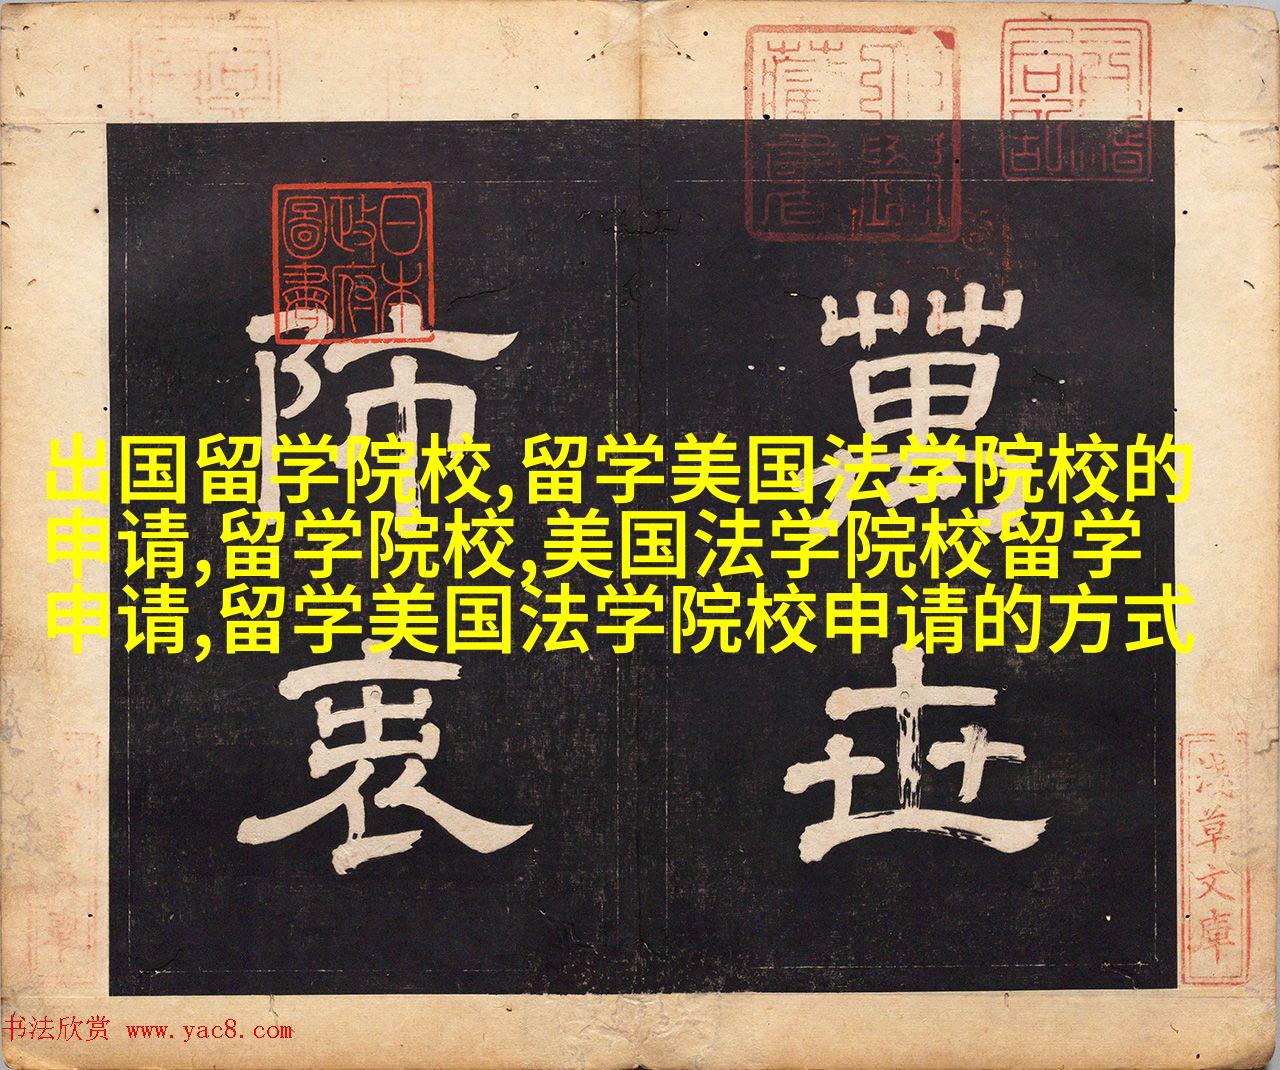 出国留学院校,留学美国法学院校的
申请,留学院校,美国法学院校留学
申请,留学美国法学院校申请的方式
萬世
日本
政府
圖書
浅草文庫
书法欣赏 www.yac8.com